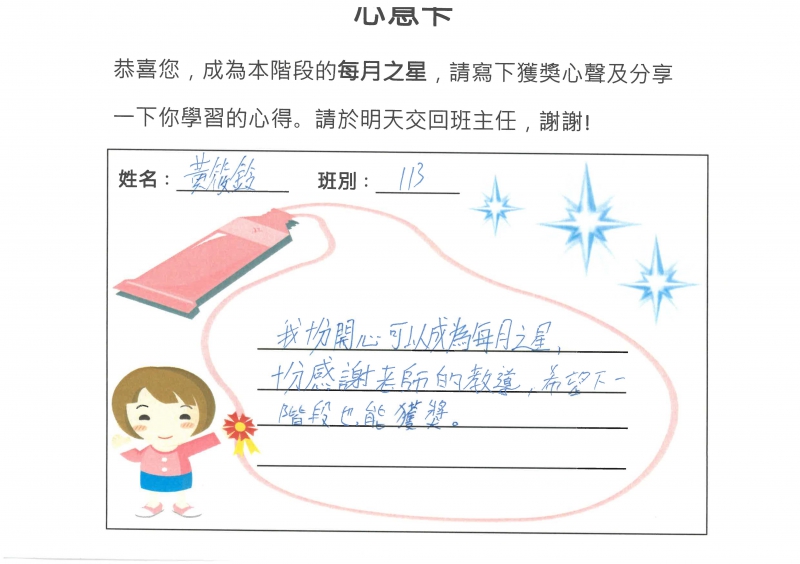 心意卡
恭喜您，成為本階段的每月之星，請寫下獲獎心聲及分享
一下你學習的心得。請於明天交回班主任，謝謝!
姓名：黃筱鈴 班別：113
我十分開心可以成為每月之星，
十分感謝老師的教導，希望下一
階段也能獲獎。